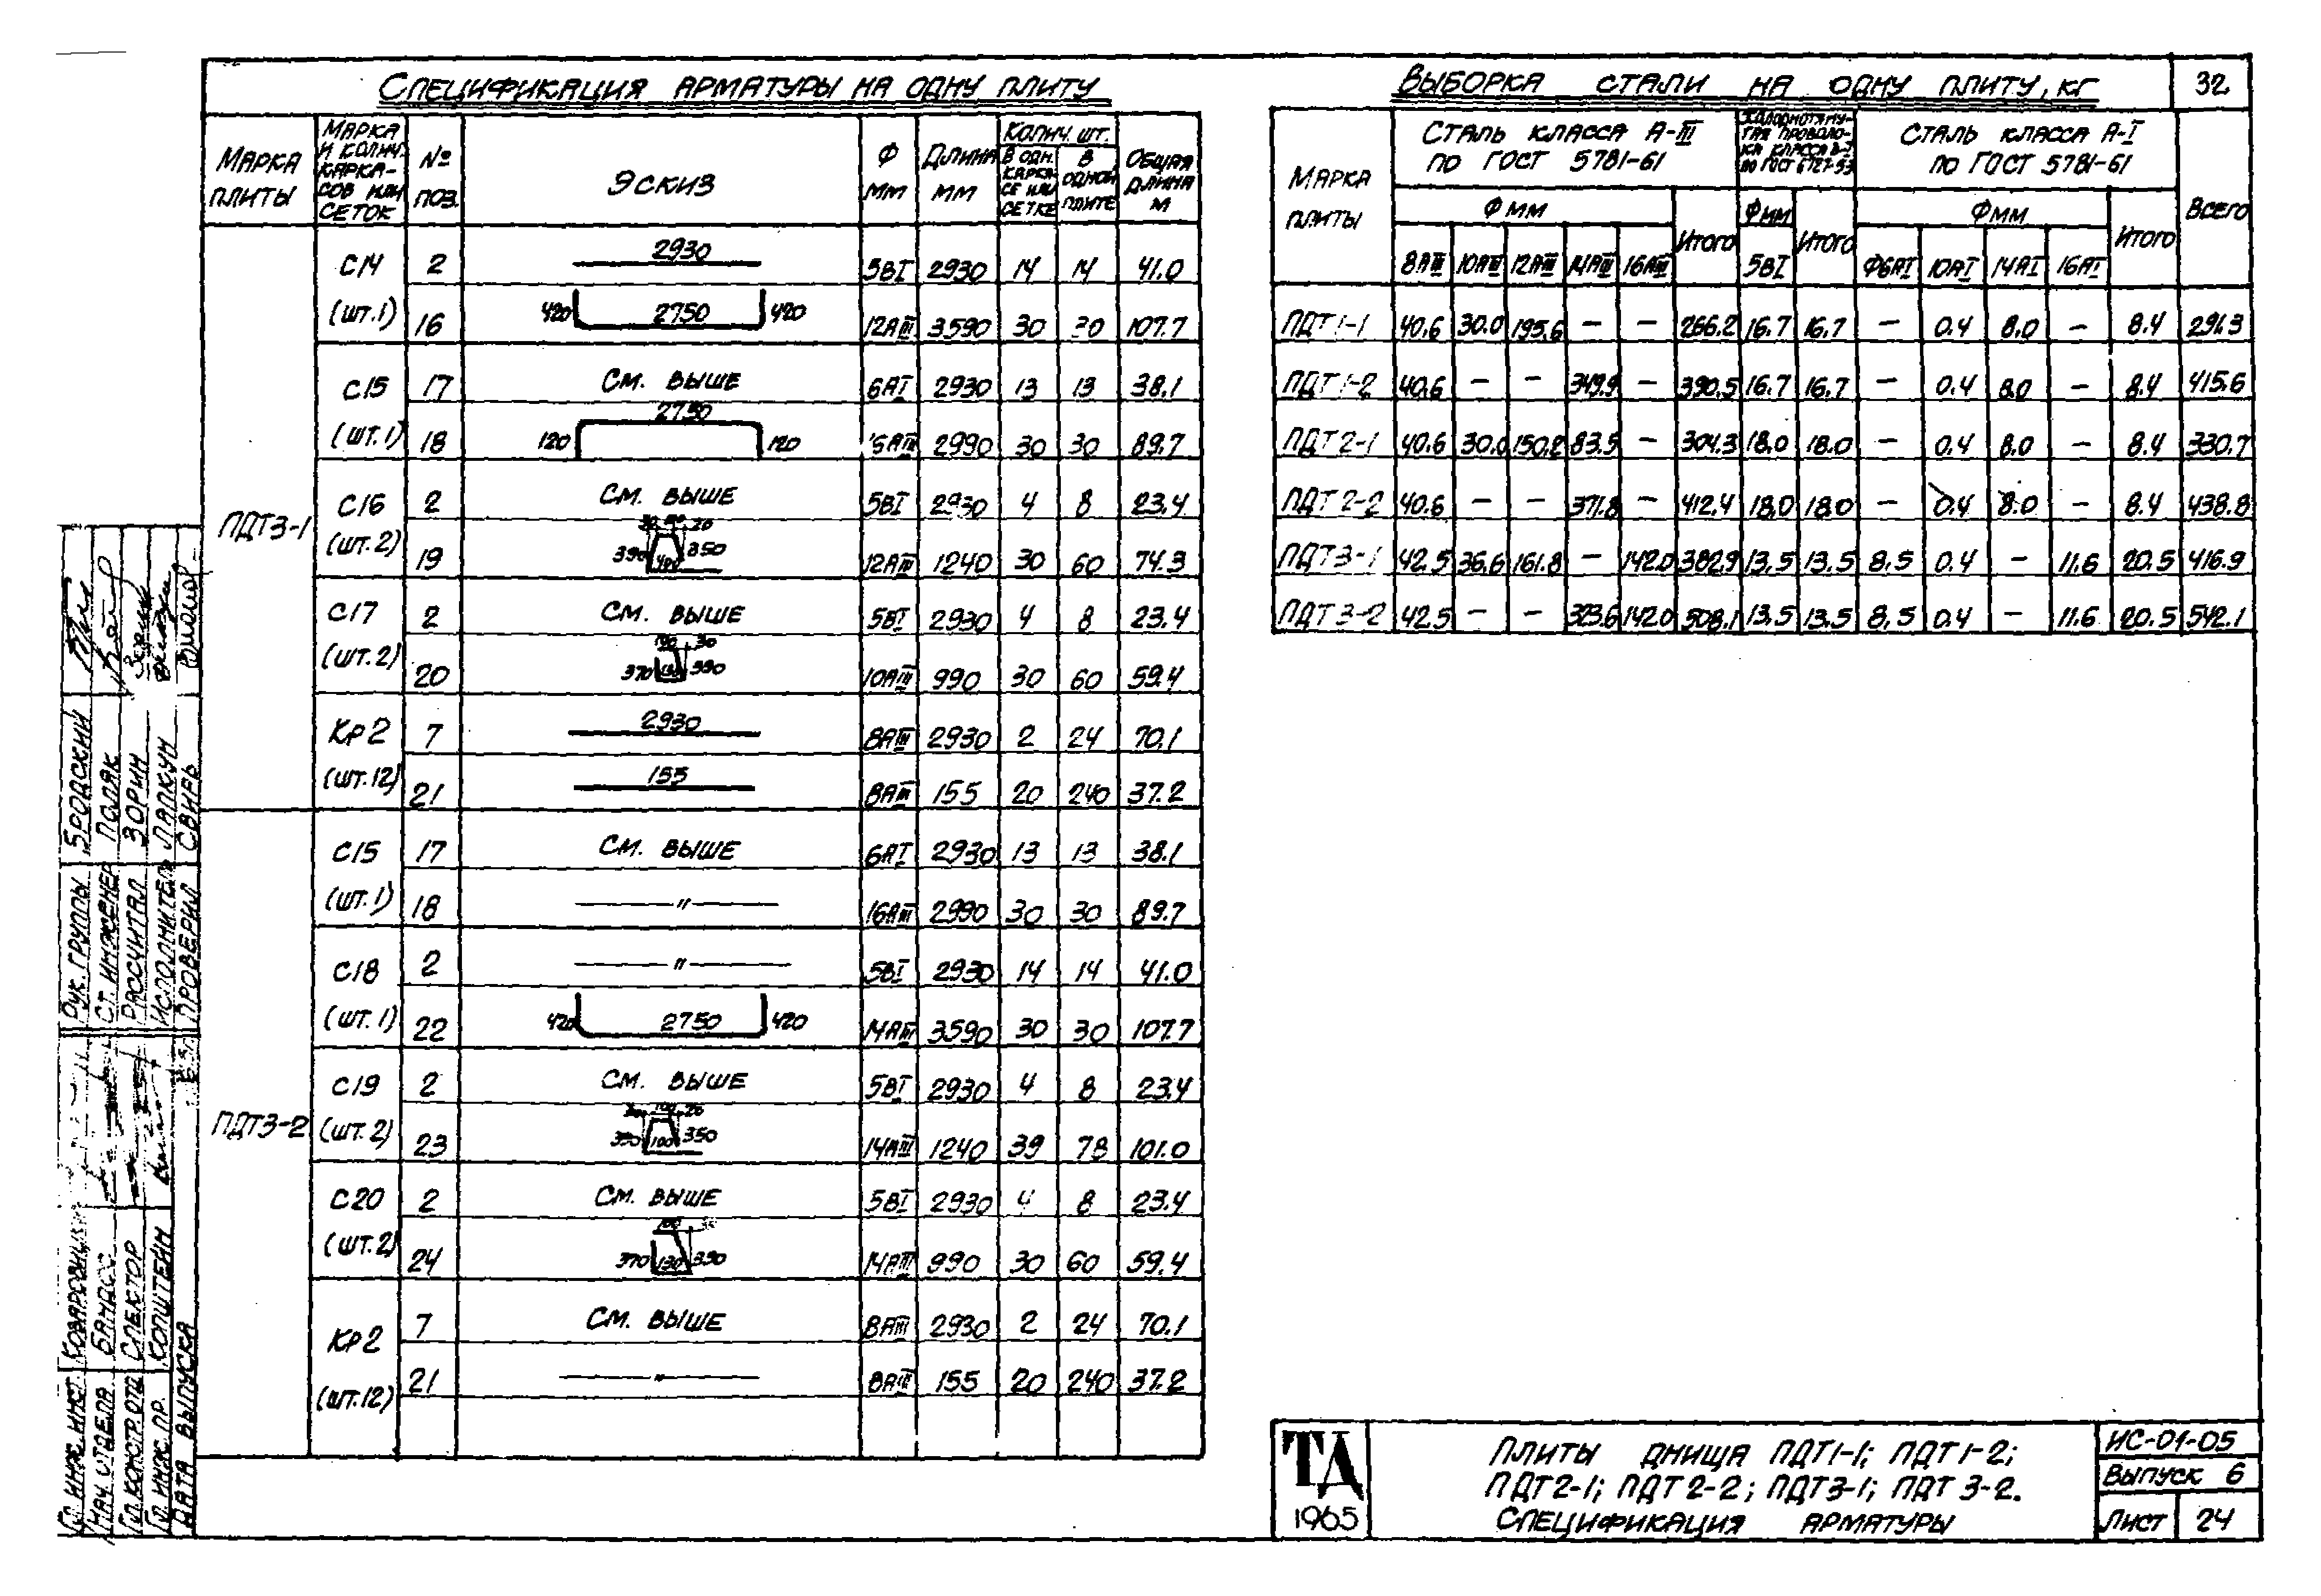 Спецификация арматуры на одну плиту
Марка плиты | Марка и колич. каркасов или сеток | № поз. | Эскиз | Ф мм | Длина мм | Колич. шт. В одн. каркасе или сетке | В одной плите | Общая длина м
ПДТ3-1
С14 (шт.1) | 2 | 2930 | 5ВI | 2930 | 14 | 14 | 41.0
16 | 420 2750 420 | 12АIII | 3590 | 30 | 30 | 107.7
С15 (шт.1) | 17 | См. выше | 6АI | 2930 | 13 | 13 | 38.1
18 | 120 2750 120 | 2990 | 30 | 30 | 89.7
С16 (шт.2) | 2 | См. выше | 5ВI | 2930 | 4 | 8 | 23.4
19 | 20 350 | 12АIII | 1240 | 30 | 60 | 74.3
С17 (шт.2) | 2 | См. выше | 5ВI | 2930 | 4 | 8 | 23.4
20 | 30 370 390 | 10АIII | 990 | 30 | 60 | 59.4
Кр2 (шт.12) | 7 | 2930 | 8АIII | 2930 | 2 | 24 | 70.1
21 | 155 | 8АIII | 155 | 20 | 240 | 37.2
ПДТ3-2
С15 (шт.1) | 17 | См. выше | 6АI | 2930 | 13 | 13 | 38.1
18 | — " — | 16АIII | 2990 | 30 | 30 | 89.7
С18 (шт.1) | 2 | — " — | 5ВI | 2930 | 14 | 14 | 41.0
22 | 420 2750 420 | 14АIII | 3590 | 30 | 30 | 107.7
С19 (шт.2) | 2 | См. выше | 5ВI | 2930 | 4 | 8 | 23.4
23 | 100 20 350 100 350 | 14АIII | 1240 | 39 | 78 | 101.0
С20 (шт.2) | 2 | См. выше | 5ВI | 2930 | 4 | 8 | 23.4
24 | 100 370 130 390 | 14АIII | 990 | 30 | 60 | 59.4
Кр2 (шт.12) | 7 | См. выше | 8АIII | 2930 | 2 | 24 | 70.1
21 | — " — | 8АIII | 155 | 20 | 240 | 37.2
Выборка стали на одну плиту, кг
32
Марка плиты | Сталь класса А-III по ГОСТ 5781-61 | Холоднотянутая проволока класса В-I по ГОСТ 6727-53 | Сталь класса А-I по ГОСТ 5781-61 | Всего
Ф мм | Итого | Ф мм | Итого | Ф мм | Итого
8АIII | 10АIII | 12АIII | 14АIII | 16АIII | 5ВI | Ф6АI | 10АI | 14АI | 16АI
ПДТ1-1 | 40.6 | 30.0 | 195.6 | — | — | 266.2 | 16.7 | 16.7 | — | 0.4 | 8.0 | — | 8.4 | 291.3
ПДТ1-2 | 40.6 | — | — | 349.9 | — | 390.5 | 16.7 | 16.7 | — | 0.4 | 8.0 | — | 8.4 | 415.6
ПДТ2-1 | 40.6 | 30.0 | 150.2 | 83.5 | — | 304.3 | 18.0 | 18.0 | — | 0.4 | 8.0 | — | 8.4 | 330.7
ПДТ2-2 | 40.6 | — | — | 371.8 | — | 412.4 | 18.0 | 18.0 | — | 0.4 | 8.0 | — | 8.4 | 438.8
ПДТ3-1 | 42.5 | 36.6 | 161.8 | — | 142.0 | 382.9 | 13.5 | 13.5 | 8.5 | 0.4 | — | 11.6 | 20.5 | 416.9
ПДТ3-2 | 42.5 | — | — | 323.6 | 142.0 | 508.1 | 13.5 | 13.5 | 8.5 | 0.4 | — | 11.6 | 20.5 | 542.1
Рук. группы Бродский
Ст. инженер Поляк
Расчитал Зорин
Исполнитель Лапкун
Проверил Свирь
Гл. инж. инст.
Нач. отдела
Гл. констр. отд. Спектор
Гл. инж. пр. Копштейн
Дата выпуска
ТД
1965
Плиты днища ПДТ1-1; ПДТ1-2;
ПДТ2-1; ПДТ2-2; ПДТ3-1; ПДТ3-2.
Спецификация арматуры
ИС-01-05
Выпуск 6
Лист 24